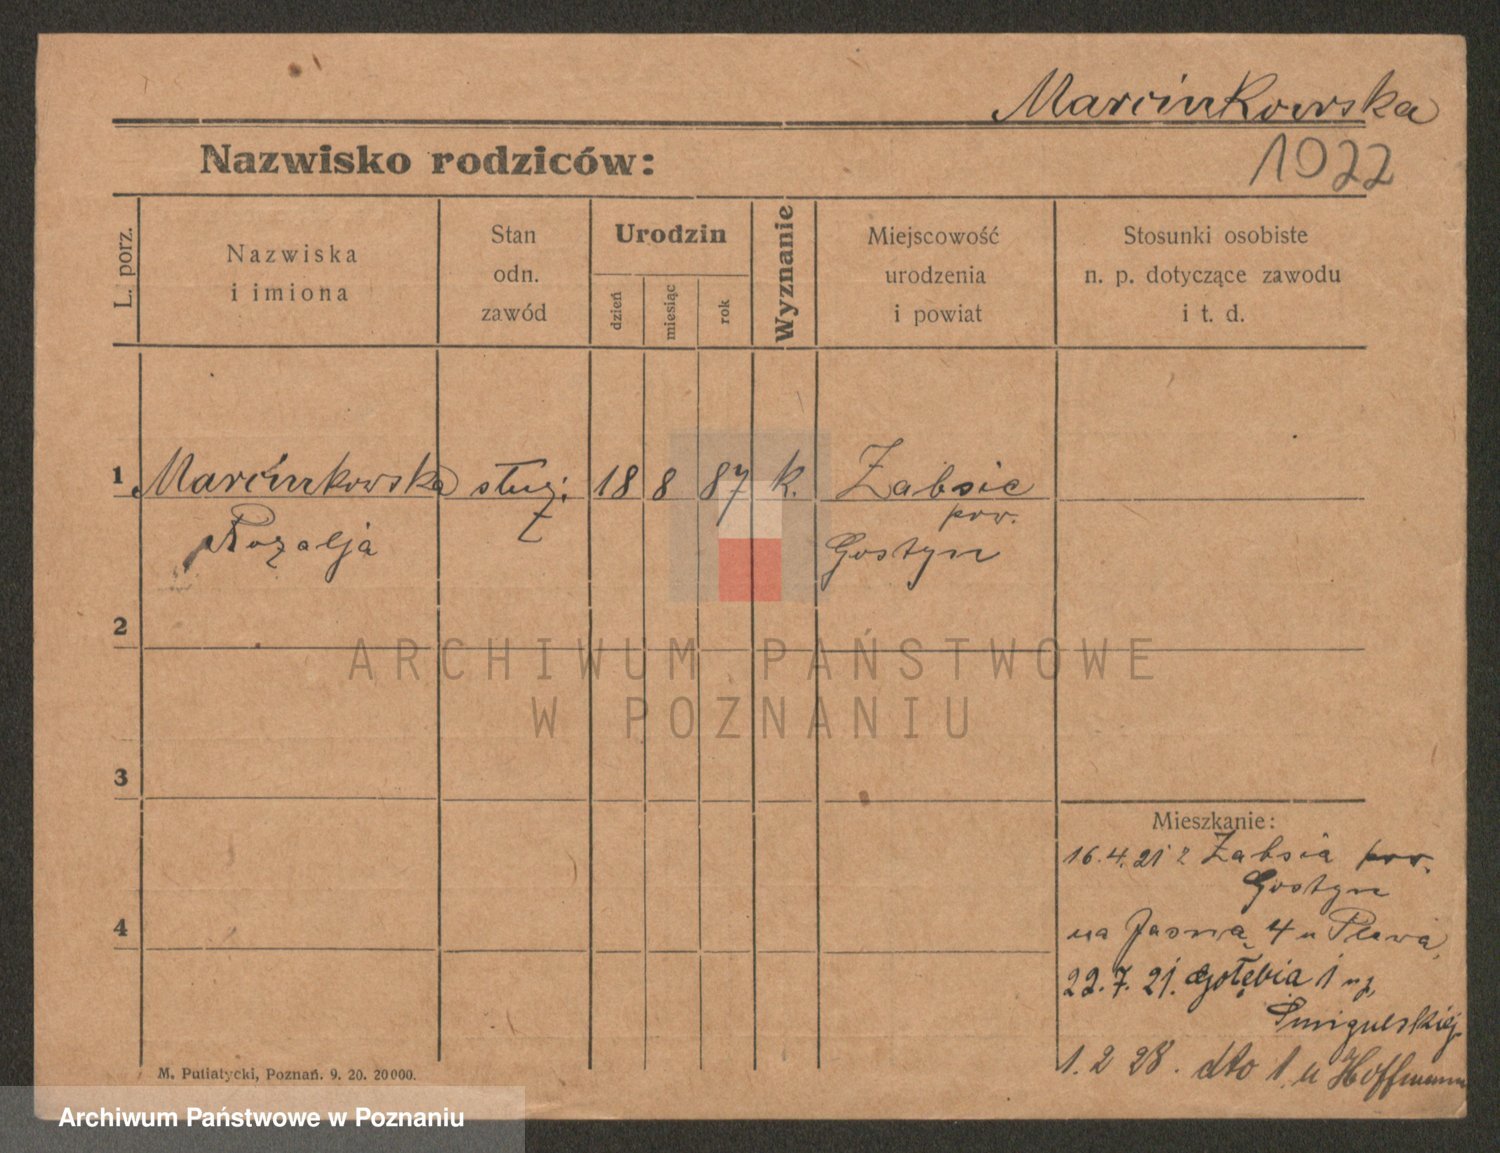 Marcinkowska
1922
Nazwisko rodziców:
L. porz.
Nazwiska
i imiona
Stan
odn.
zawód
Urodzin
dzień
miesiąc
rok
Wyznanie
Miejscowość
urodzenia
i powiat
Stosunki osobiste
n. p. dotyczące zawodu
i t. d.
1 Marcinkowska służ. 18 8 87 k. Żabsie
Rozalja
pow.
Gostyn
2
3
4
ARCHIWUM PAŃSTWOWE
W POZNANIU
Mieszkanie:
16.4.21 z Żabsia pow.
Gostyn
na Jasną 4 u Plawa
22.7.21. Gołębia 1
Śmigielskiej
1. 2 28. dto 1. u Hoffmann
M. Putiatycki, Poznań. 9. 20. 20000.
Archiwum Państwowe w Poznaniu